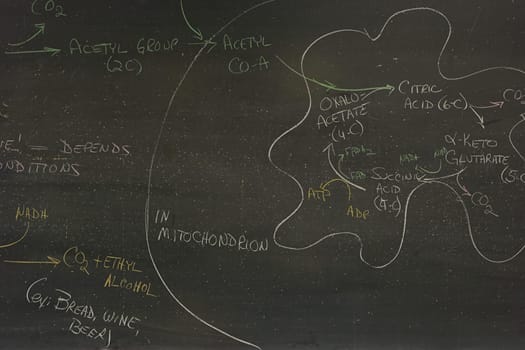 CO2
ACETYL GROUP
(2C)
ACETYL
CO-A
OXALO-
ACETATE
(4-C)
CITRIC
ACID (6-C)
CO
α-KETO
GLUTARATE
(5-C
NADH
NAD
FADH2
FAD
SUCCINIC
ACID
(4-C)
CO2
ATP
ADP
= DEPENDS
ONDITIONS
IN
MITOCHONDRION
NADH
CO2 + ETHYL
ALCOHOL
(ex: BREAD, WINE,
BEER)